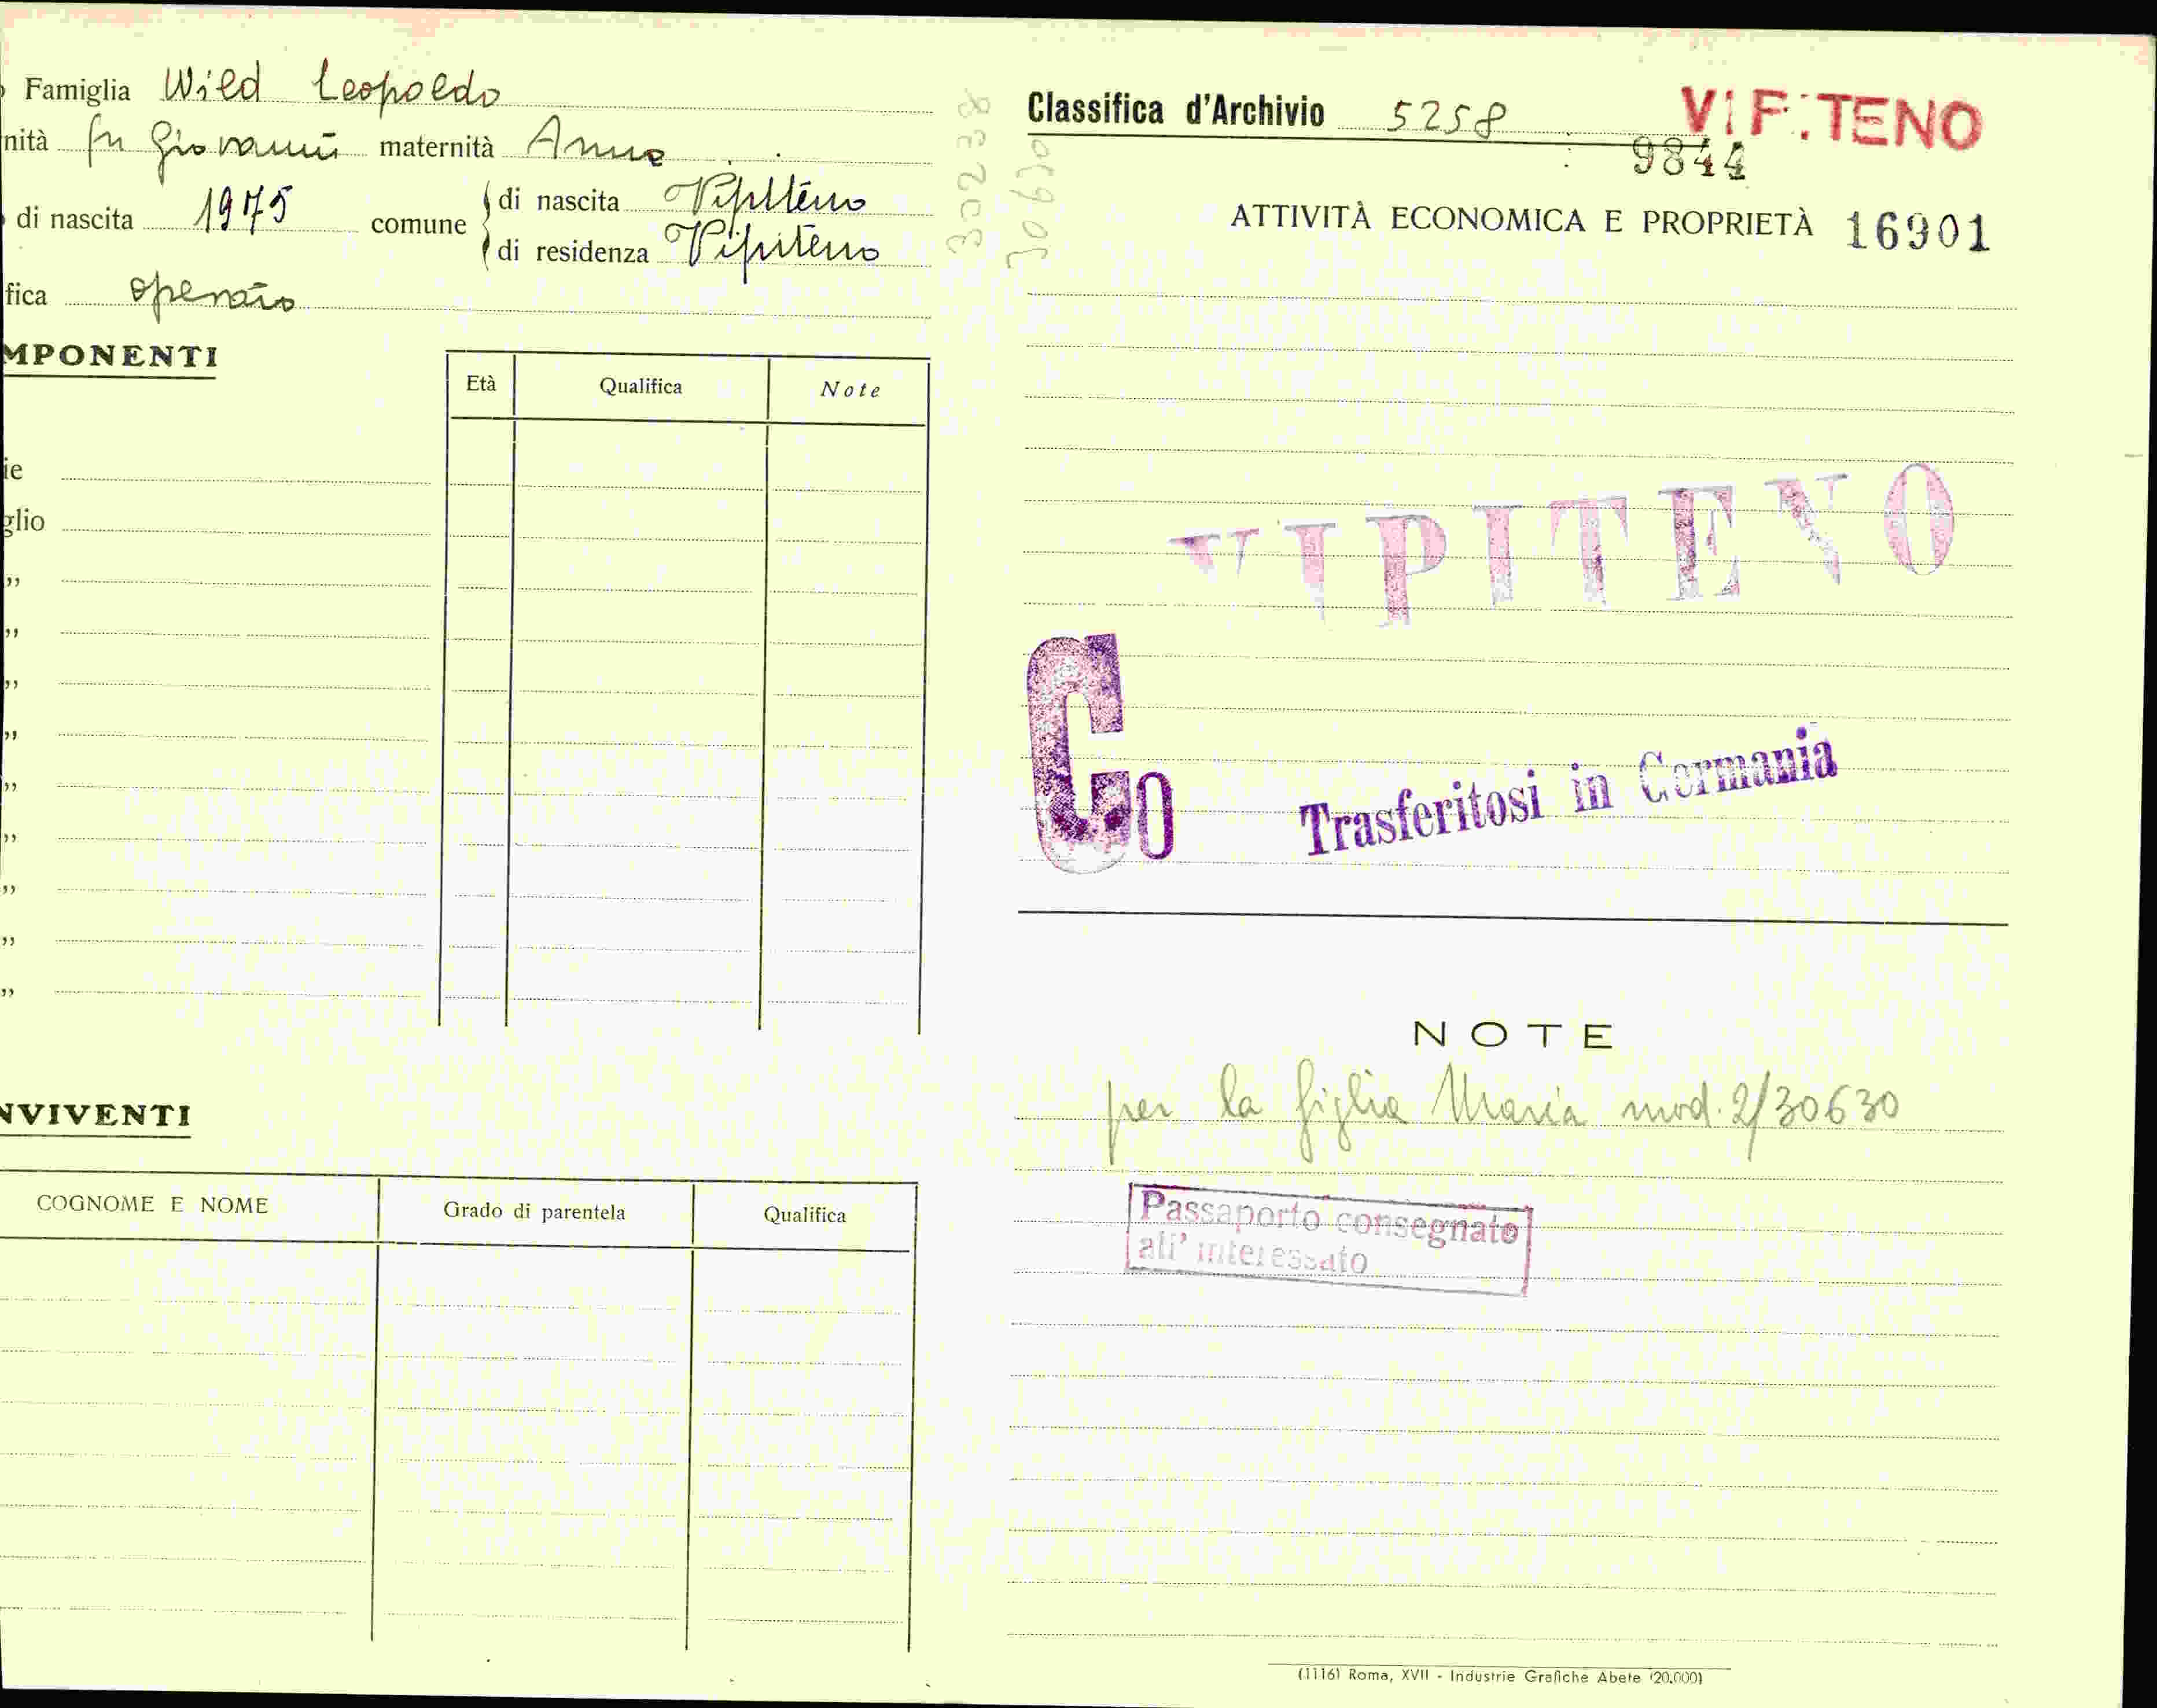 Famiglia Wild Leopoldo
nità fu Giovanni maternità Anna
di nascita 1975 comune di nascita Vipitteno
di residenza Vipiteno
fica operaio
MPONENTI
Età Qualifica Note
ie
glio
”
”
”
”
”
”
”
”
”
NVIVENTI
COGNOME E NOME Grado di parentela Qualifica
30238
30630
Classifica d'Archivio 5258 VIPITENO
9844
ATTIVITÀ ECONOMICA E PROPRIETÀ 16901
VIPITENO
Co
Trasferitosi in Germania
NOTE
per la figlia Maria mod. 2/30630
Passaporto consegnato
all' interessato
(1116) Roma, XVII - Industrie Grafiche Abete (20.000)